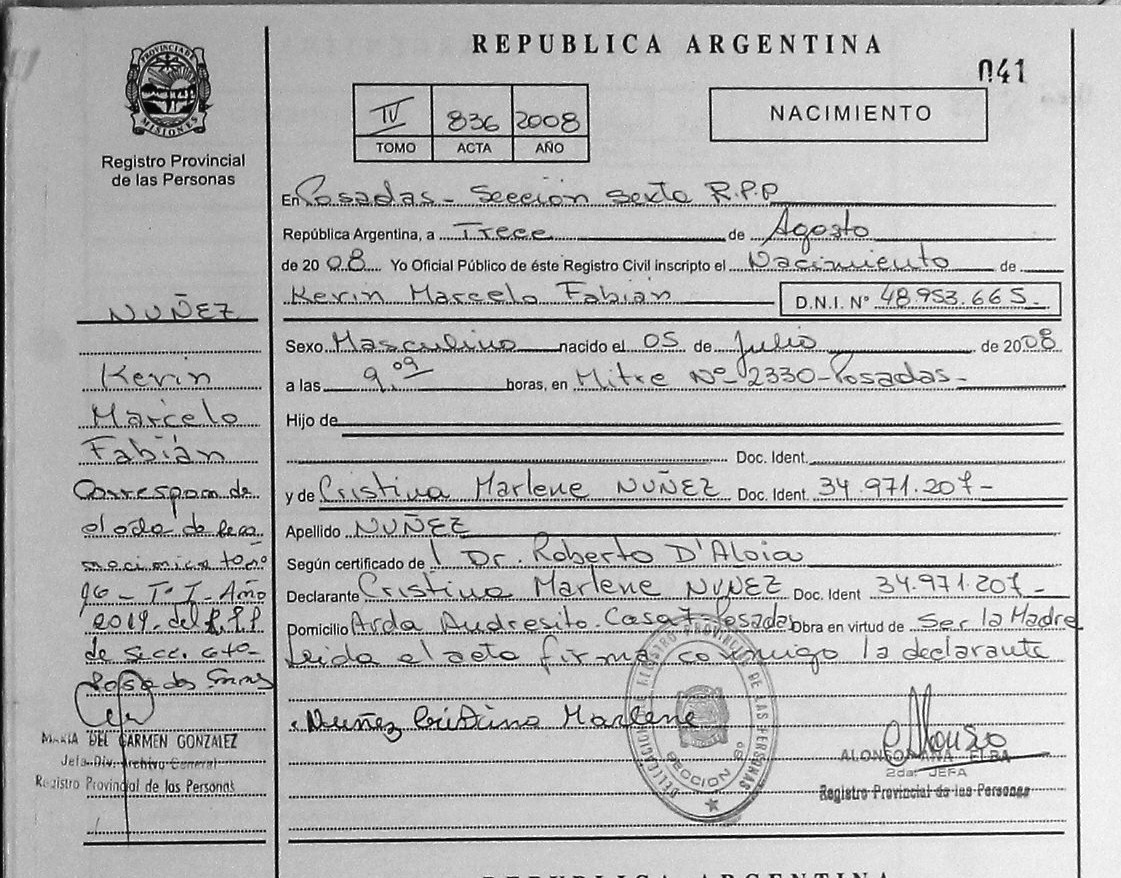 REPUBLICA ARGENTINA
041
PROVINCIA DE MISIONES
Registro Provincial
de las Personas
IV 836 2008
TOMO ACTA AÑO
NACIMIENTO
En Posadas - Sección sexta R.P.P
República Argentina, a Trece de Agosto
de 20 08 Yo Oficial Público de éste Registro Civil inscripto el Nacimiento de
Kevin Marcelo Fabián D.N.I. N° 48.953.665-
Sexo Masculino nacido el 05 de Julio de 2008
a las 9,09 horas, en Mitre Nº 2330-Posadas-
Hijo de
Doc. Ident.
y de Cristina Marlene NUÑEZ Doc. Ident. 34.971.207-
Apellido NUÑEZ
Según certificado de Dr. Roberto D'Aloia
Declarante Cristina Marlene NUÑEZ Doc. Ident 34.971.207-
Domicilio Avda Andresito. Casa 7-Posadas Obra en virtud de Ser la Madre
Leida el acta firma conmigo la declarante
Nuñez Cristina Marlene
DELEGACION REGISTRO PROVINCIAL DE LAS PERSONAS
SECCION 6º
ALONSO ANA ELBA
2da. JEFA
Registro Provincial de las Personas
NUÑEZ
Kevin
Marcelo
Fabián
Correspon de
el acta de
96 - Tº I - Año
2019. del R.P.P
de Secc. 6to-
Posadas
MARIA DEL CARMEN GONZALEZ
Jefa Div. Archivo General
Registro Provincial de las Personas
REPUBLICA ARGENTINA